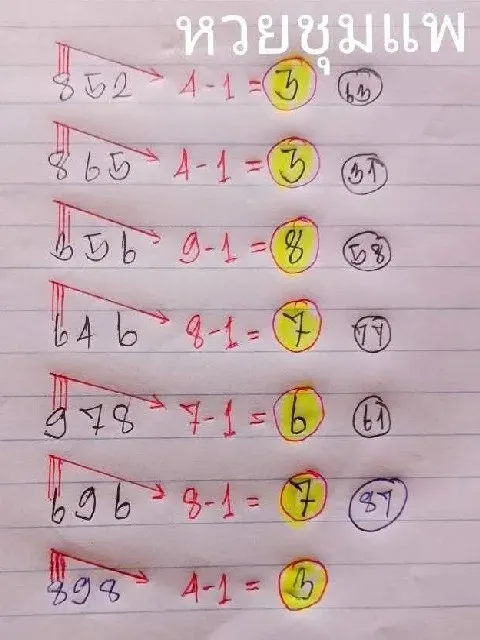 หวยชุมแพ
852 4-1=3 63
865 4-1=3 37
356 9-1=8 58
646 8-1=7 77
978 7-1=6 67
696 8-1=7 87
898 4-1=3